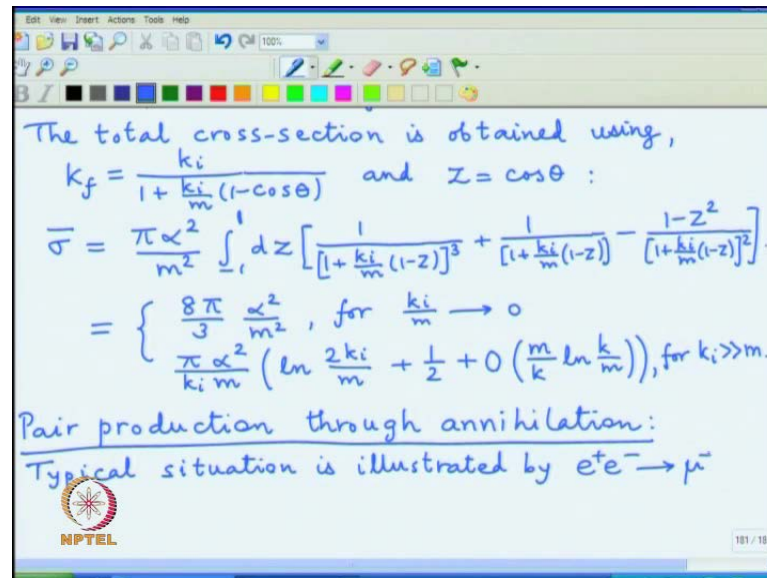 Edit View Insert Actions Tools Help
100%
B I
The total cross-section is obtained using,
k_f = k_i / (1 + (k_i/m)(1-cosθ)) and z = cosθ :
σ̄ = (πα²/m²) ∫_{-1}^{1} dz [ 1/[1+(k_i/m)(1-z)]³ + 1/[1+(k_i/m)(1-z)] - (1-z²)/[1+(k_i/m)(1-z)]² ].
= { (8π/3) (α²/m²), for k_i/m → 0
(πα²/(k_i m)) (ln (2k_i/m) + 1/2 + O((m/k) ln (k/m))), for k_i >> m.
Pair production through annihilation:
Typical situation is illustrated by e⁺e⁻ → μ⁻
NPTEL
181 / 18